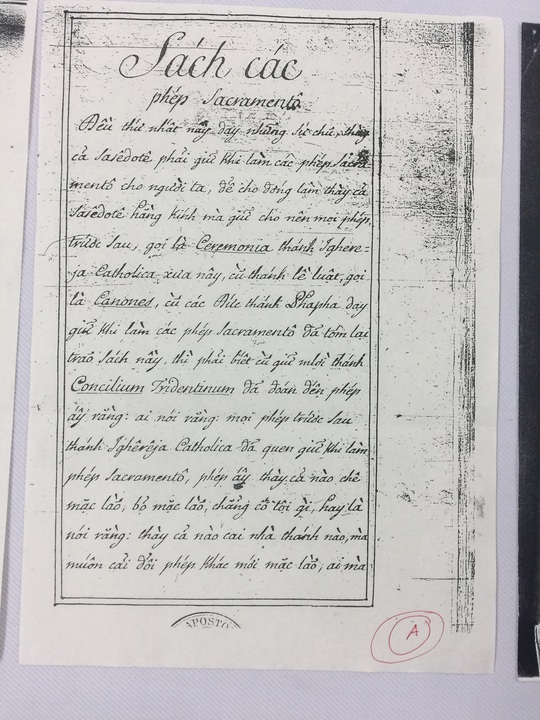 Sách các
phép Sacramentô
Đều thứ nhất nầy dạy những sự chức thầy
cả Saserdotê phải giữ khi làm các phép Sacra
mentô cho người ta, để cho đâng làm thầy cả
Saserdotê hằng kính mà giữ cho nên mọi phép
trước sau, gọi là Ceremonia thánh Ighere=
ja Catholica xưa nay, cũ thánh lề luật, gọi
là Canones, cũ các Đức thánh Phapha dạy
giữ khi làm các phép Sacramentô đã tóm lại
trao sách nầy, thì phải biết cũ giữ mlời thánh
Concilium Tridentinum đã đoán đến phép
ấy rằng: ai nói rằng: mọi phép trước sau
thánh Ighêrêja Catholica đã quen giữ khi làm
phép Sacramentô, phép ấy thầy cả nào chê
mặc lào, bỏ mặc lào, chẳng có tội gì, hay là
nói rằng: thầy cả nào cai nhà thánh nào, mà
muốn cải đổi phép khác mới mặc lào, ai mà
APOSTO
A